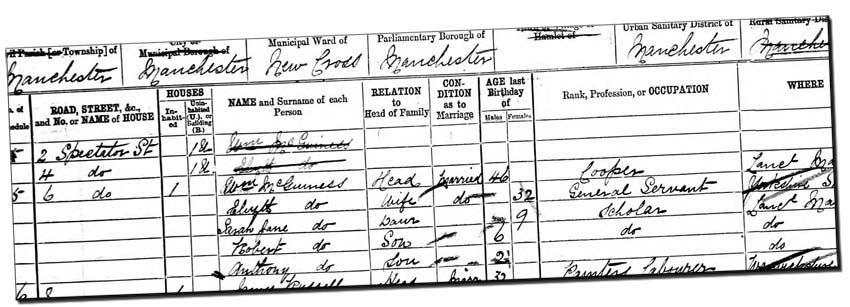 Parish [or Township] of City or Municipal Borough of Municipal Ward of Parliamentary Borough of Hamlet of Urban Sanitary District of Rural Sanitary Dist
Manchester Manchester New Cross Manchester Manchester Manche
HOUSES
ROAD, STREET, &c., and No. or NAME of HOUSE In-habit-ed Unin-habited (U.), or Building (B.) NAME and Surname of each Person RELATION to Head of Family CON-DITION as to Marriage AGE last Birthday of Males Females Rank, Profession, or OCCUPATION WHERE
5 2 Spectator St 1U Wm McGuiness
4 do 1U do
5 6 do 1 Wm McGuiness Head Married 46 Cooper Lanct Ma
do Wife do 32 General Servant Yorkshire S
Sarah Jane do Daur 9 Scholar Lanct Ma
Robert do Son 6 do do
Anthony do Son 2 do
6 8 1 Russell Head Marr 32 Painters Labourer